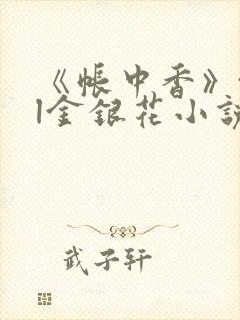 《帐中香》
l金银花小说
武子轩